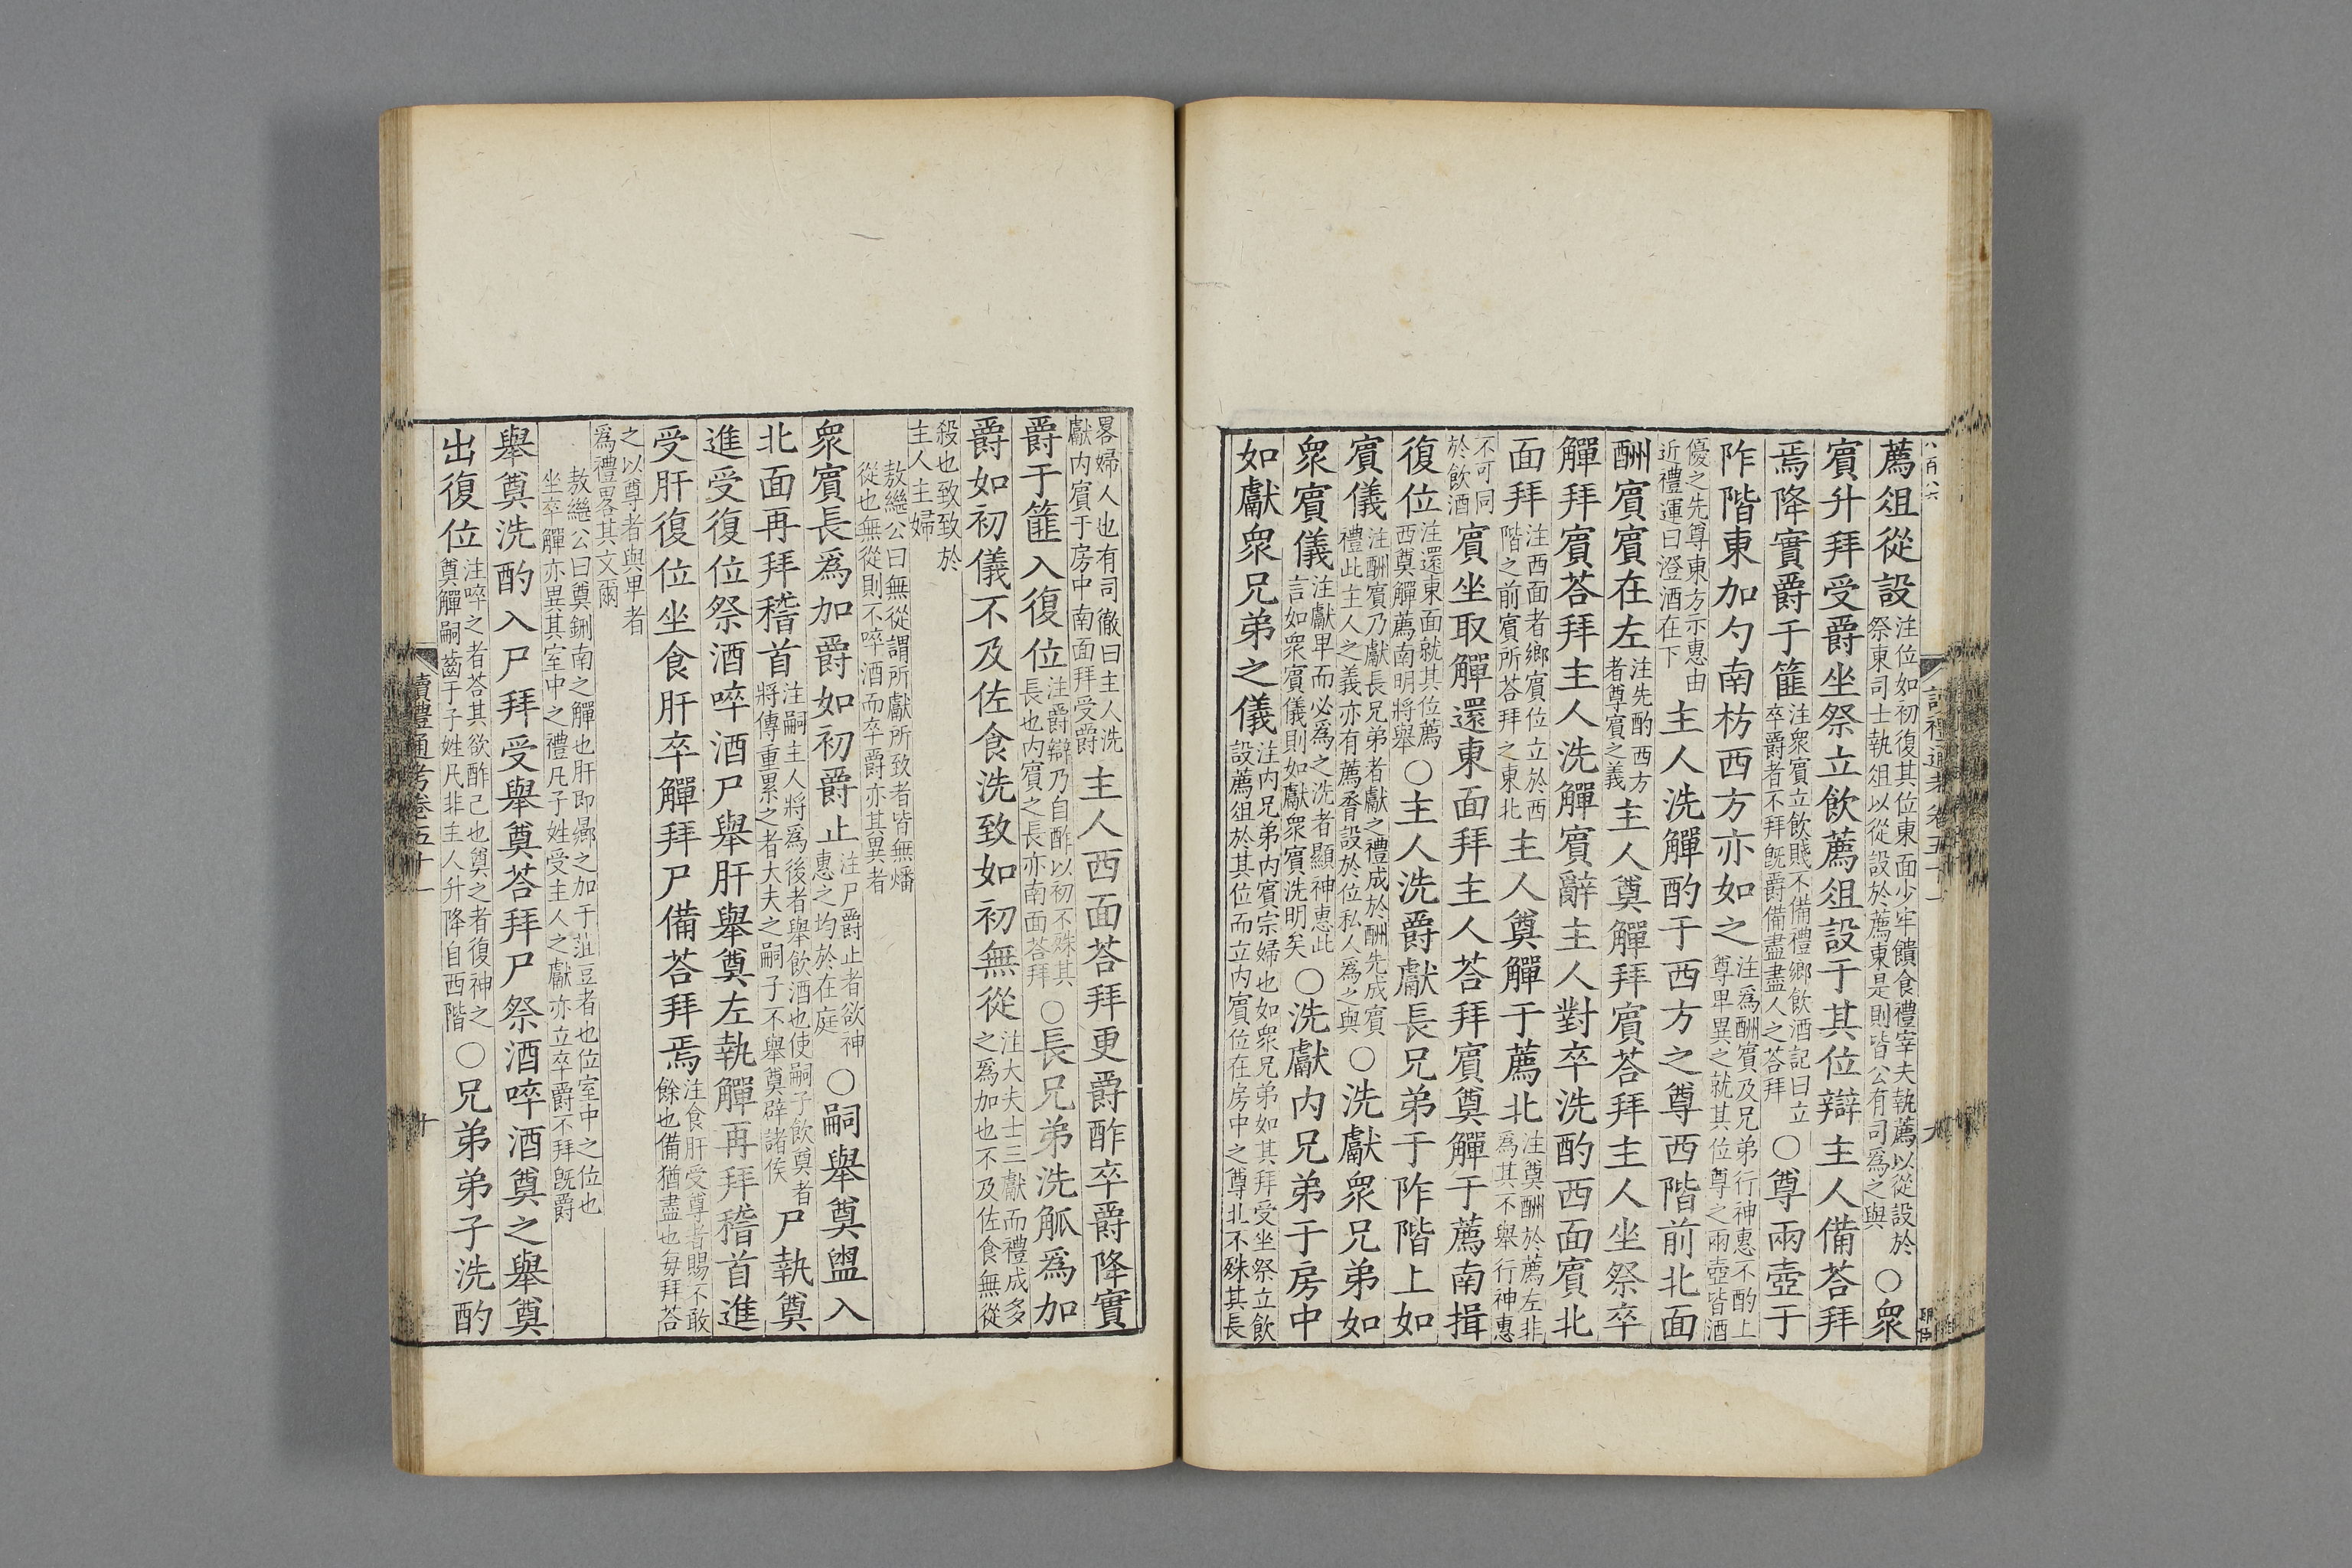 薦俎從設注位如初復其位東面少牢饋食禮宰夫執薦以從設於祭東司士執俎以從設於薦東是則皆公有司為之與○衆
賔升拜受爵坐祭立飲薦俎設于其位辯主人備荅拜
焉降實爵于篚注衆賔立飲賤不備禮鄉飲酒記曰立卒爵者不拜旣爵備盡盡人之荅拜○尊兩壺于
阼階東加勺南枋西方亦如之注爲酬賔及兄弟行神惠不酌上尊卑異之就其位尊之兩壺皆酒
優之先尊東方示惠由近禮運曰澄酒在下主人洗觶酌于西方之尊西階前北面
酬賔賔在左注先酌西方者尊賔之義主人奠觶拜賔荅拜主人坐祭卒
觶拜賔荅拜主人洗觶賔辭主人對卒洗酌西面賔北
面拜注西面者鄉賔位立於西階之前賔所荅拜之東北主人奠觶于薦北注奠酬於薦左非爲其不舉行神惠
不可同於飲酒賔坐取觶還東面拜主人荅拜賔奠觶于薦南揖
復位注還東面就其位薦西奠觶薦南明將舉○主人洗爵獻長兄弟于阼階上如
賔儀注酬賔乃獻長兄弟者獻之禮成於酬先成賔禮此主人之義亦有薦脀設於位私人爲之與○洗獻衆兄弟如
衆賔儀注獻卑而必爲之洗者顯神惠此言如衆賔儀則如獻衆賔洗明矣○洗獻内兄弟于房中
如獻衆兄弟之儀注内兄弟内賔宗婦也如衆兄弟如其拜受坐祭立飲設薦俎於其位而立内賔位在房中之尊北不殊其長
畧婦人也有司徹曰主人洗獻内賔于房中南面拜受爵主人西面荅拜更爵酢卒爵降實
爵于篚入復位注爵辯乃自酢以初不殊其長也内賔之長亦南面荅拜○長兄弟洗觚爲加
爵如初儀不及佐食洗致如初無從注大夫士三獻而禮成多之爲加也不及佐食無從
殺也致致於主人主婦
敖繼公曰無從謂所獻所致者皆無燔從也無從則不啐酒而卒爵亦其異者
衆賔長爲加爵如初爵止注尸爵止者欲神惠之均於在庭○嗣舉奠盥入
北面再拜稽首注嗣主人將爲後者舉飲酒也使嗣子飲奠者將傳重累之者大夫之嗣子不舉奠辟諸侯尸執奠
進受復位祭酒啐酒尸舉肝舉奠左執觶再拜稽首進
受肝復位坐食肝卒觶拜尸備荅拜焉注食肝受尊者賜不敢餘也備猶盡也每拜荅
之以尊者與卑者爲禮畧其文爾
敖繼公曰奠鉶南之觶也肝即曏之加于菹豆者也位室中之位也坐卒觶亦異其室中之禮凡子姓受主人之獻亦立卒爵不拜旣爵
舉奠洗酌入尸拜受舉奠荅拜尸祭酒啐酒奠之舉奠
出復位注啐之者荅其欲酢己也奠之者復神之奠觶嗣齒于子姓凡非主人升降自西階○兄弟弟子洗酌
讀禮通考卷五十一
十